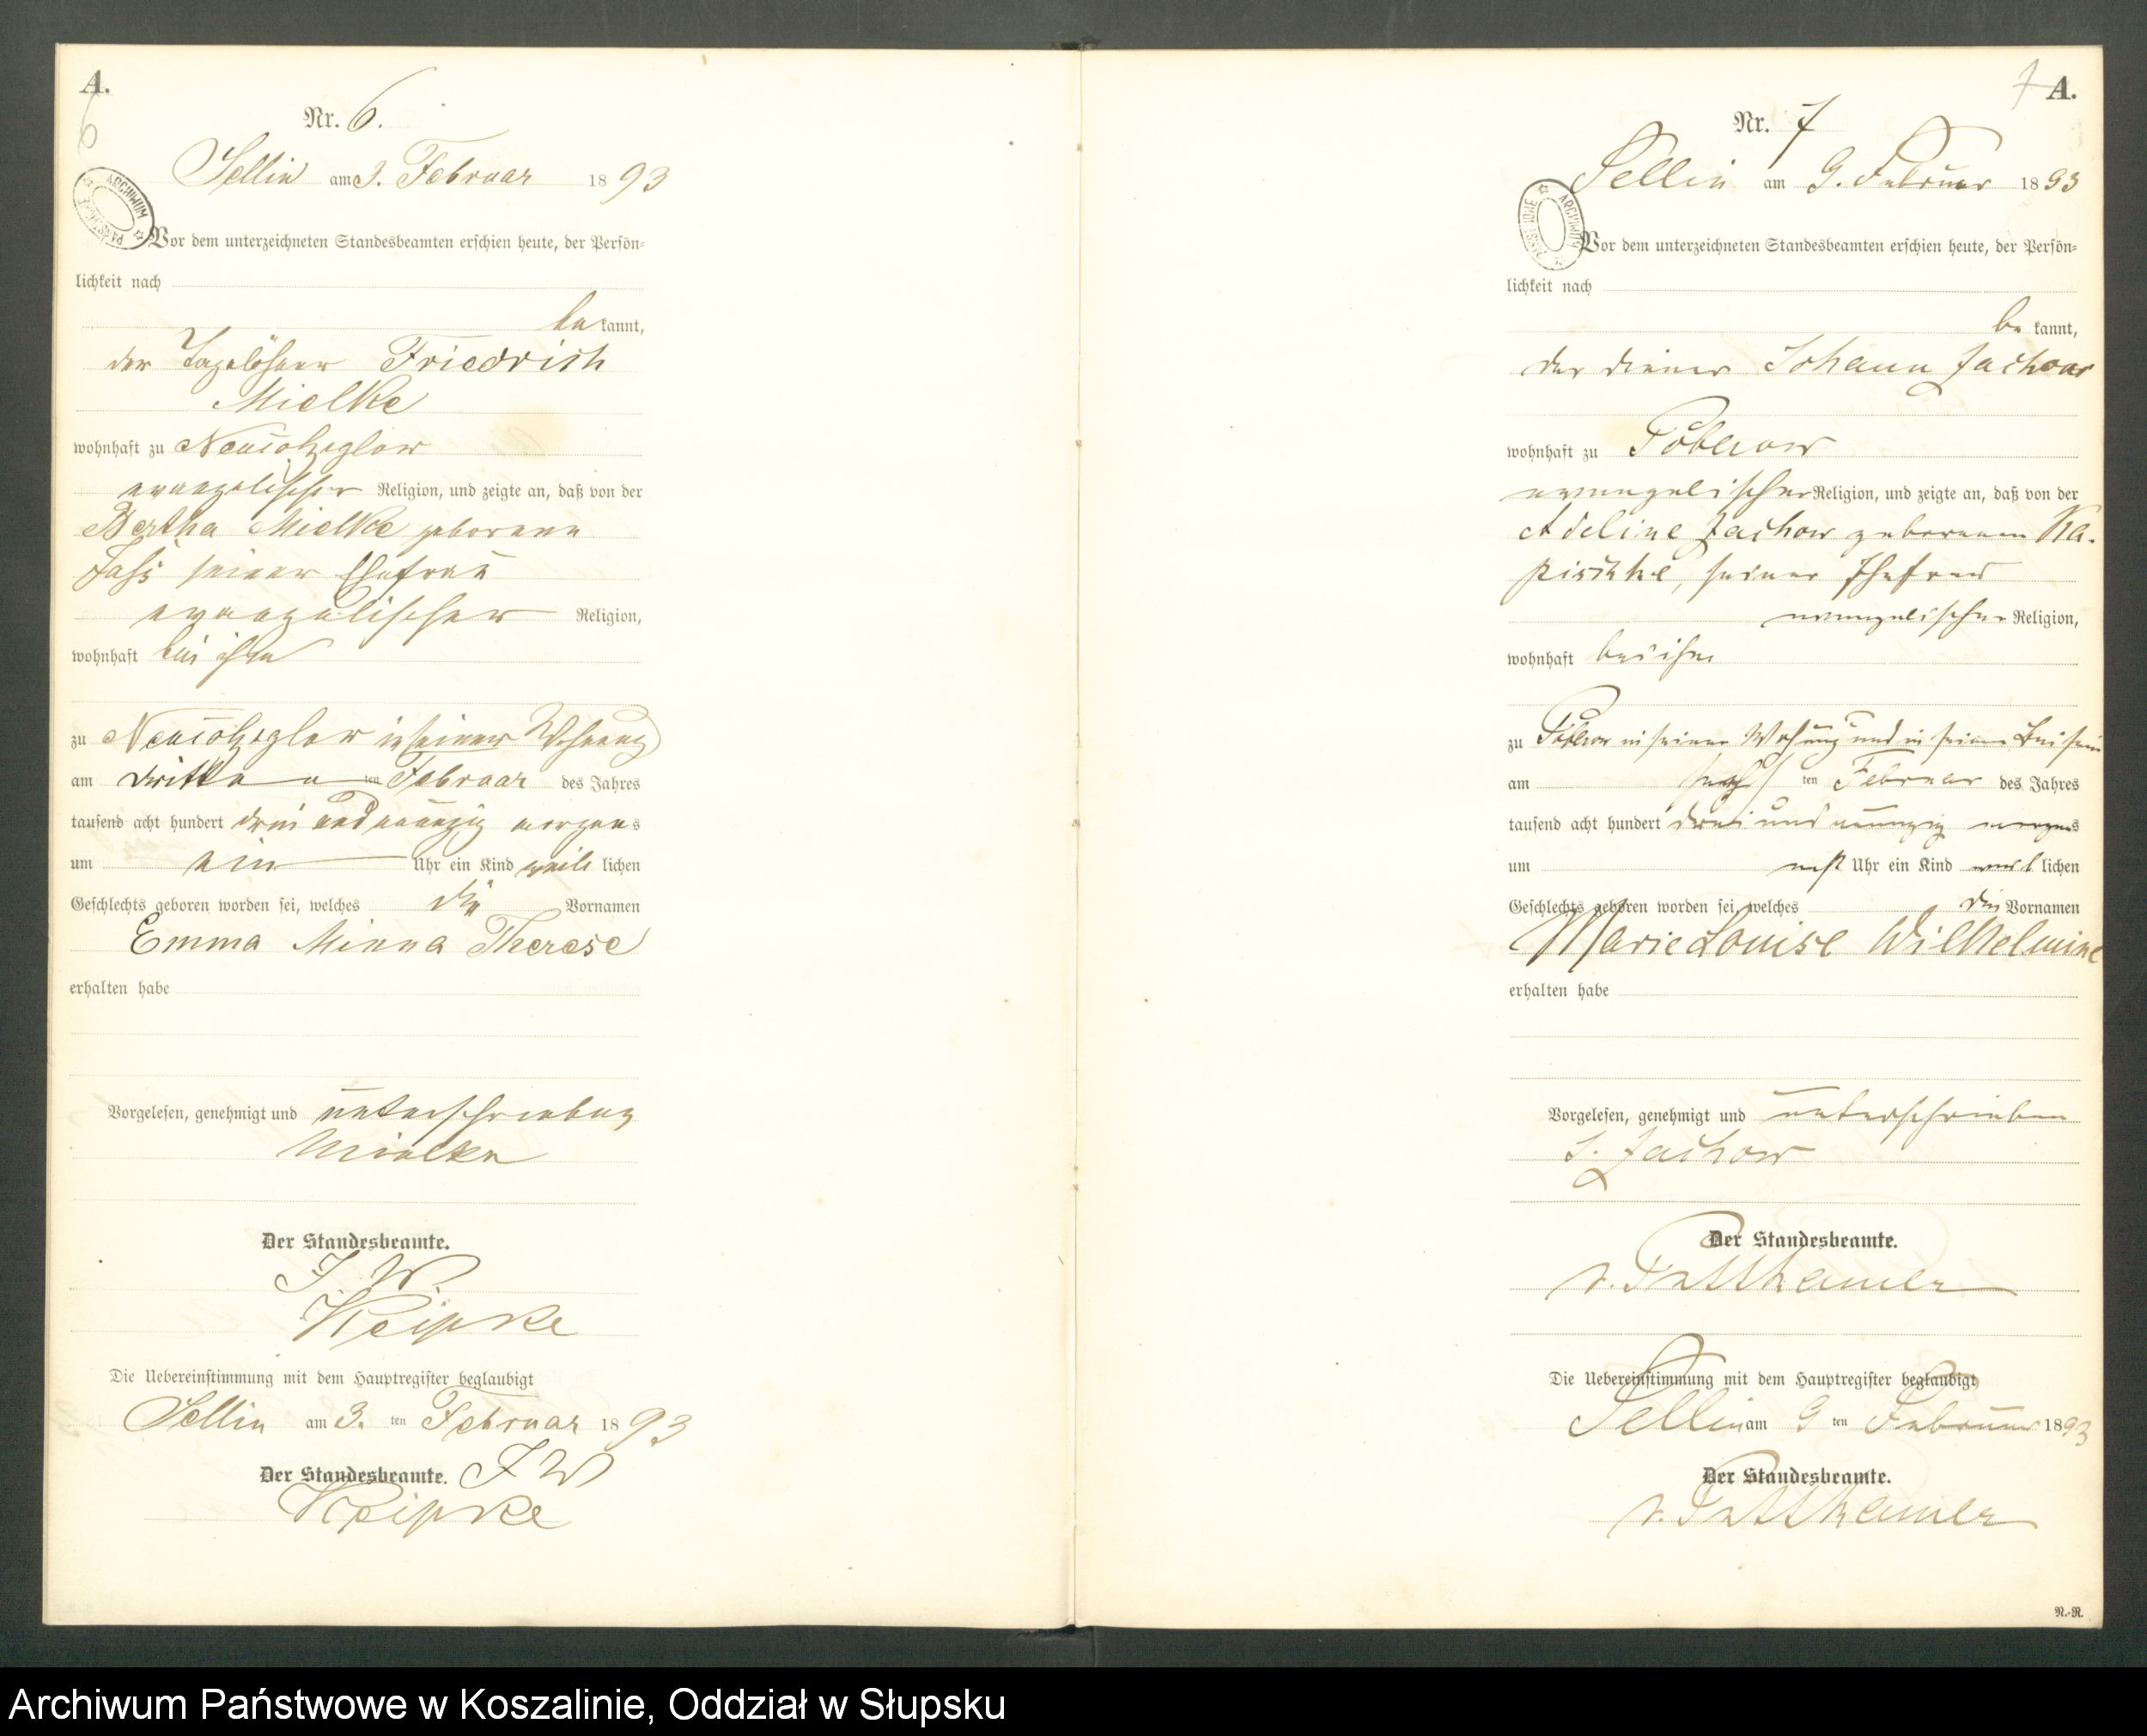 A.
6
Nr. 6.
Sellin am 3. Februar 1893
ARCHIWUM PAŃSTWOWE
Vor dem unterzeichneten Standesbeamten erschien heute, der Persön-
lichkeit nach
bekannt,
der Tagelöhner Friedrich
Mielke
wohnhaft zu Neujotzeglow
evangelischer Religion, und zeigte an, daß von der
Bertha Mielke geborene
seiner Ehefrau
evangelischer Religion,
wohnhaft bei ihm
zu Neujotzeglow in seiner Wohnung
am dritten ten Februar des Jahres
tausend acht hundert drei und neunzig morgens
um ein Uhr ein Kind weiblichen
Geschlechts geboren worden sei, welches die Vornamen
Emma Minna Therese
erhalten habe
Vorgelesen, genehmigt und unterschrieben
Mielke
Der Standesbeamte.
J. W.
Die Uebereinstimmung mit dem Hauptregister beglaubigt
Sellin am 3. ten Februar 1893
Der Standesbeamte. J W
7 A.
Nr. 7
Sellin am 9. Februar 1893
ARCHIWUM PAŃSTWOWE
Vor dem unterzeichneten Standesbeamten erschien heute, der Persön-
lichkeit nach
bekannt,
der Diener Johann Zachow
wohnhaft zu Poberow
evangelischer Religion, und zeigte an, daß von der
Adeline Zachow geborenen Ka-
pischke, seiner Ehefrau
evangelischer Religion,
wohnhaft bei ihm
zu Poberow in seiner Wohnung und in seinem Beisein
am ten Februar des Jahres
tausend acht hundert drei und neunzig morgens
um acht Uhr ein Kind weiblichen
Geschlechts geboren worden sei, welches die Vornamen
Marie Louise Wilhelmine
erhalten habe
Vorgelesen, genehmigt und unterschrieben
J. Zachow
Der Standesbeamte.
v. Puttkamer
Die Uebereinstimmung mit dem Hauptregister beglaubigt
Sellin am 9 ten Februar 1893
Der Standesbeamte.
v. Puttkamer
N.-R.
Archiwum Państwowe w Koszalinie, Oddział w Słupsku